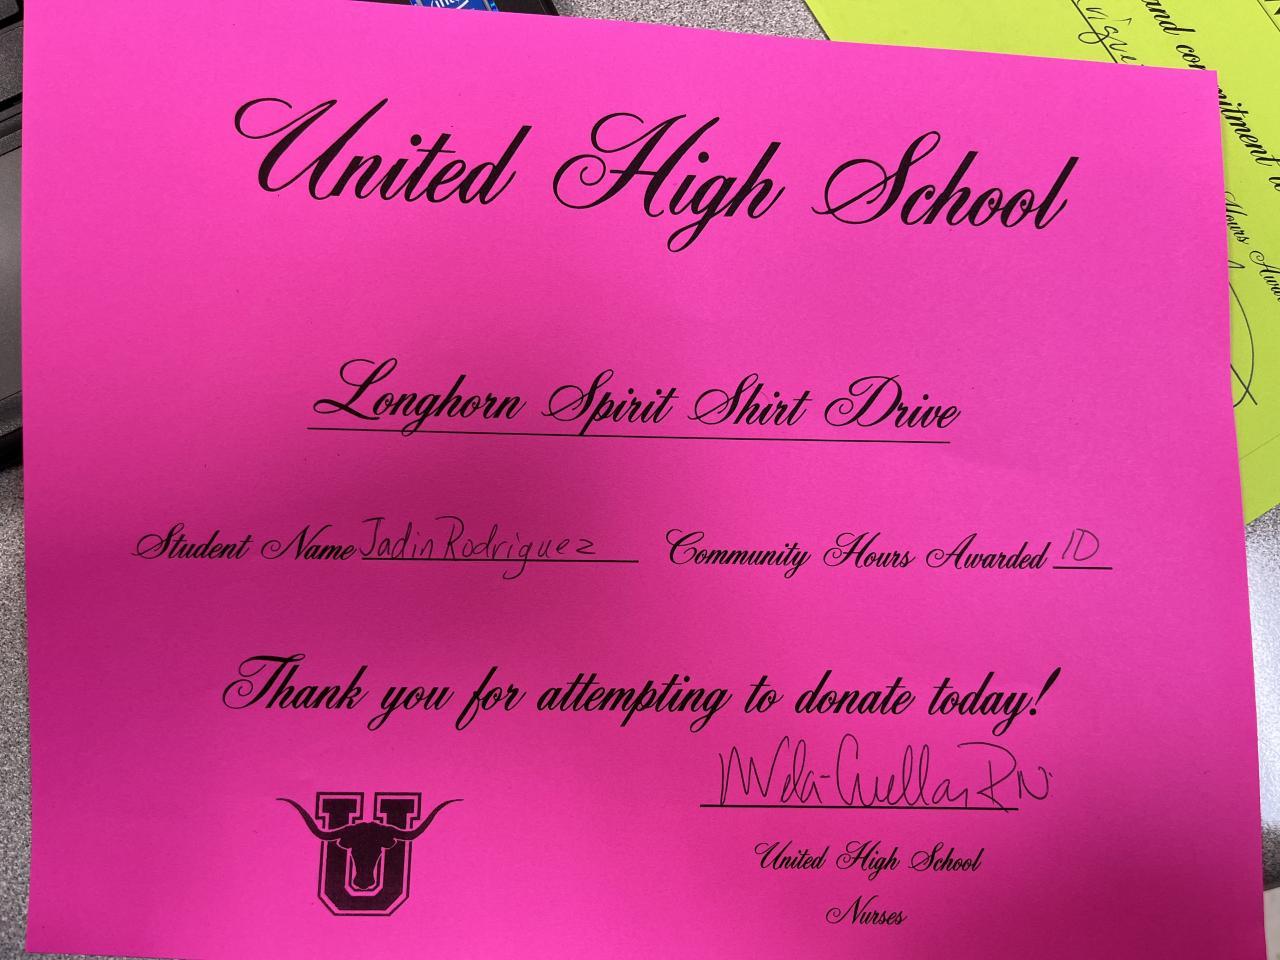 United High School
Longhorn Spirit Shirt Drive
Student Name Jadin Rodriguez Community Hours Awarded 10
Thank you for attempting to donate today!
Cuellar, RN
U
United High School
Nurses
and commitment
Hours